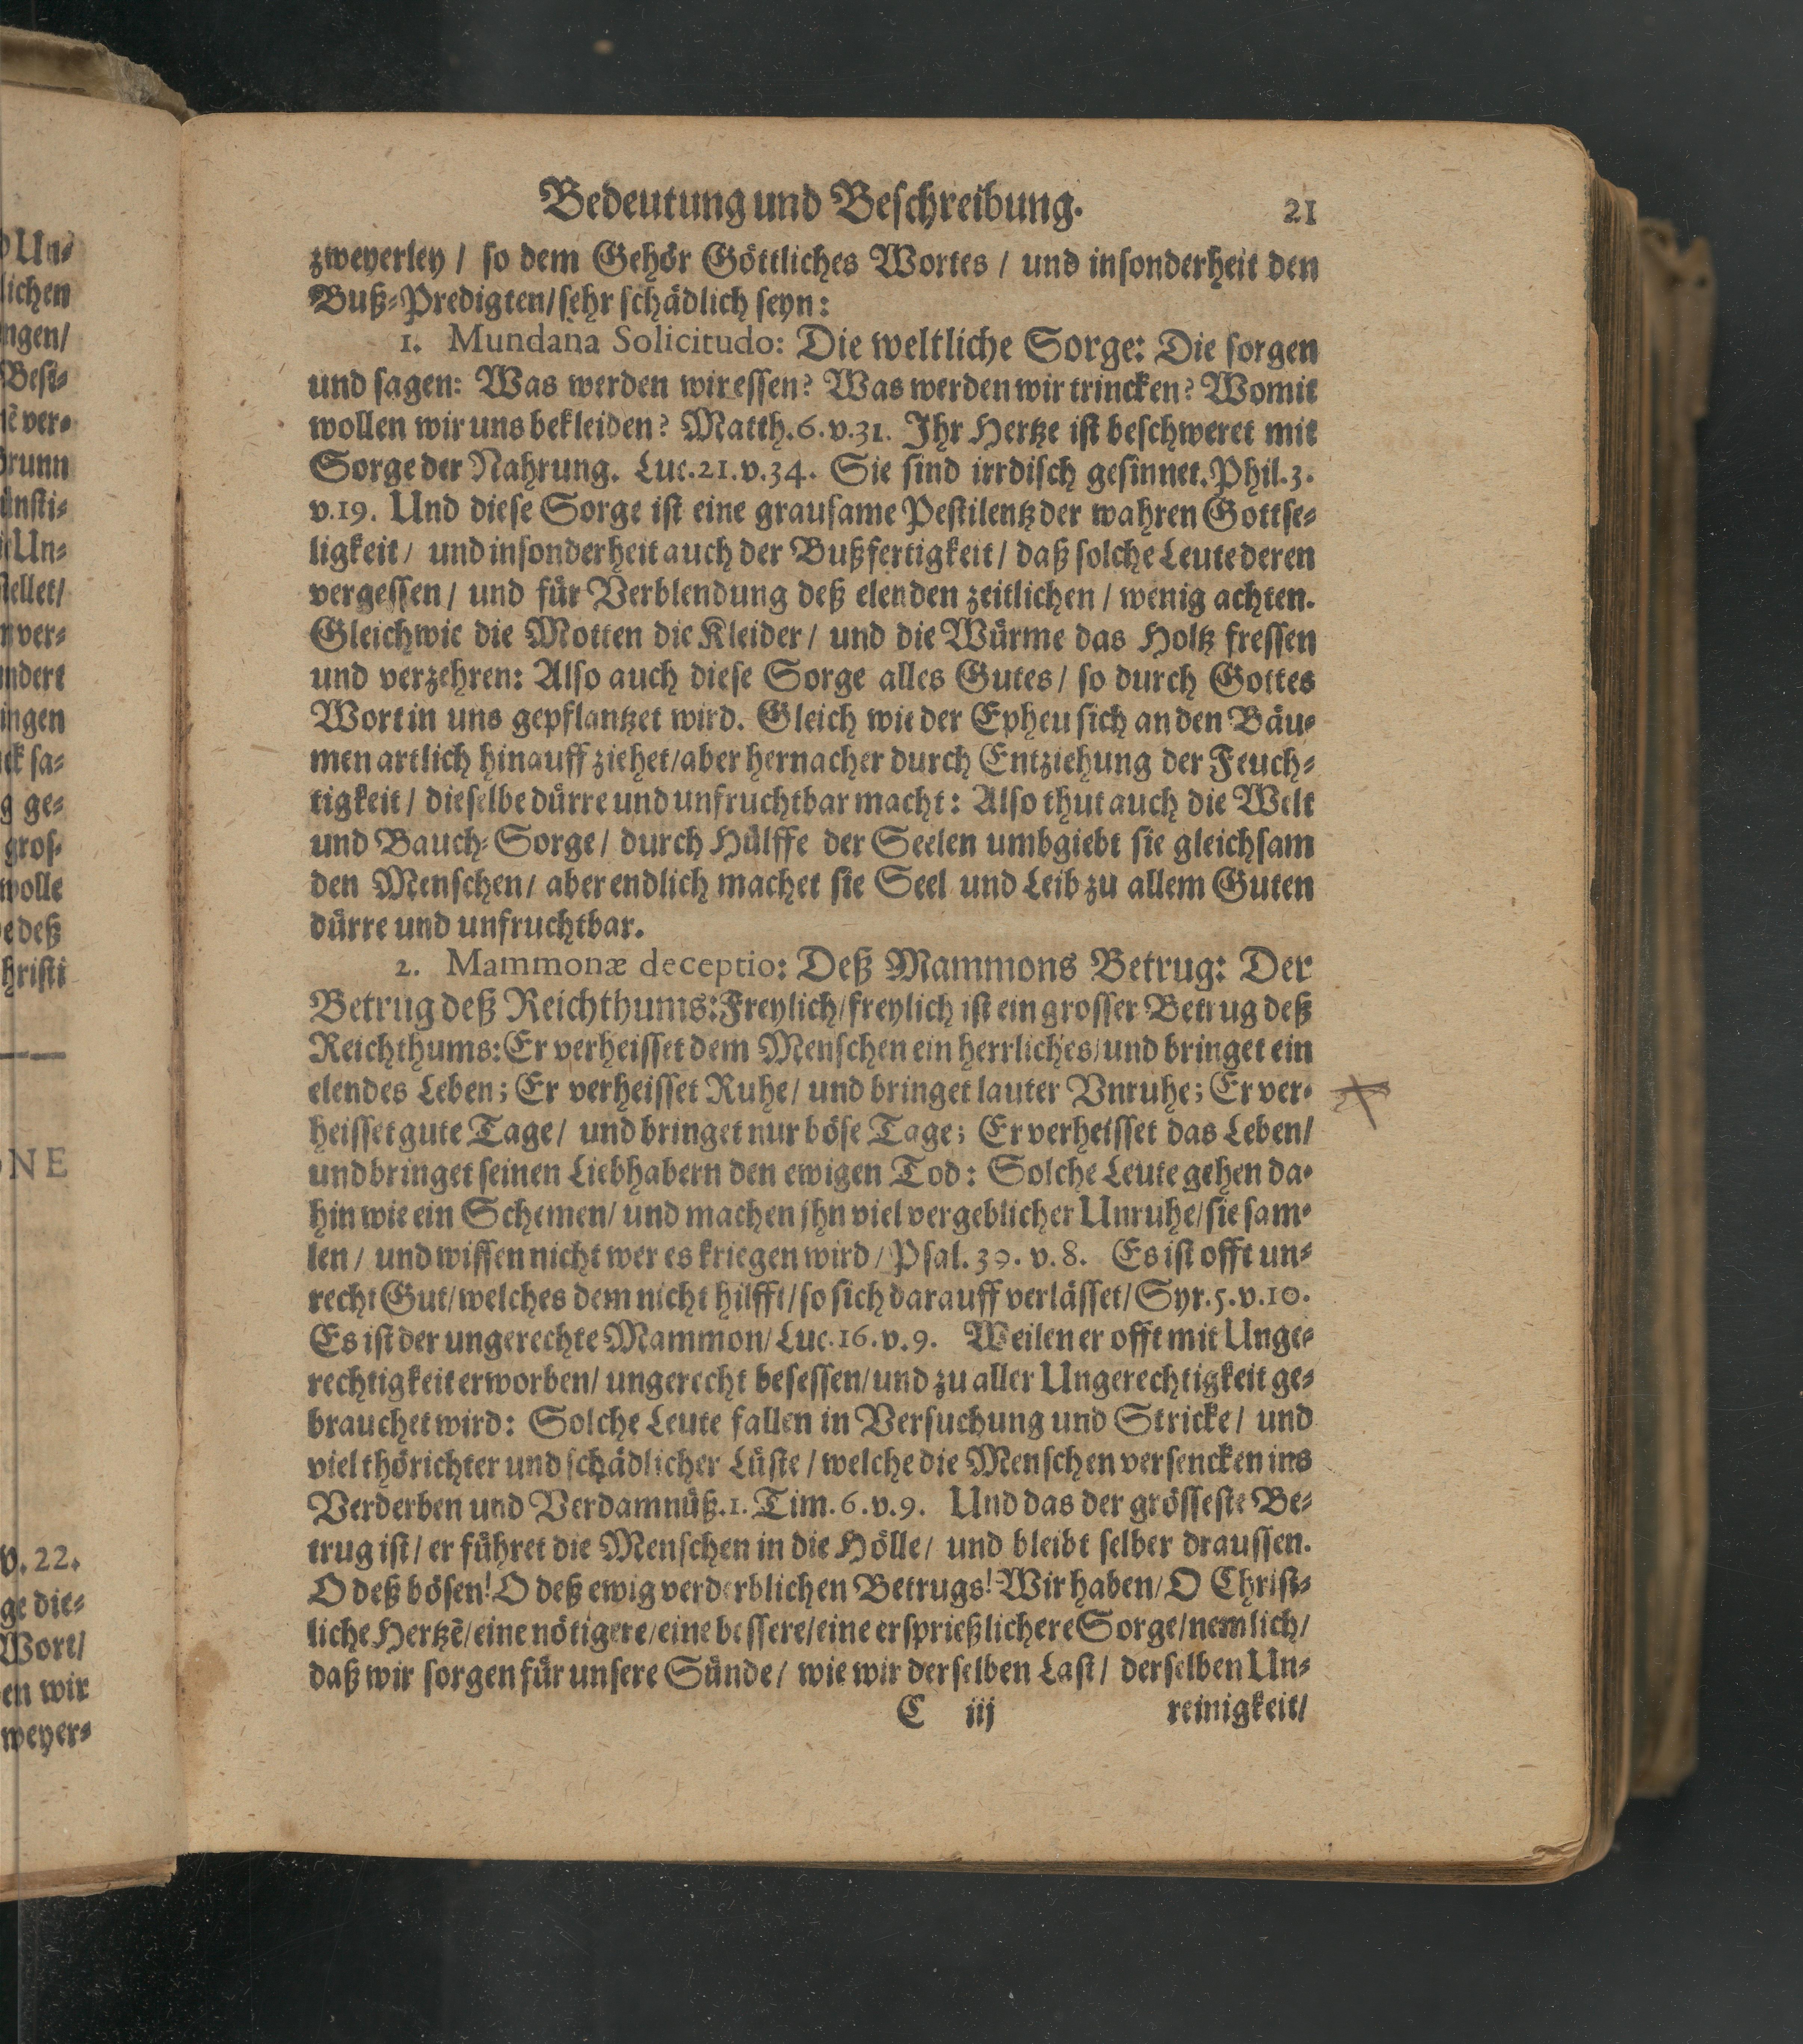 Bedeutung und Beschreibung. 21
zweyerley / so dem Gehör Göttliches Wortes / und insonderheit den
Buß-Predigten/ sehr schädlich seyn:
1. Mundana Solicitudo: Die weltliche Sorge: Die sorgen
und sagen: Was werden wir essen? Was werden wir trincken? Womit
wollen wir uns bekleiden? Matth. 6. v. 31. Ihr Hertze ist beschweret mit
Sorge der Nahrung. Luc. 21. v. 34. Sie sind irrdisch gesinnet. Phil. 3.
v. 19. Und diese Sorge ist eine grausame Pestilentz der wahren Gottse-
ligkeit / und insonderheit auch der Bußfertigkeit / daß solche Leute deren
vergessen / und für Verblendung deß elenden zeitlichen / wenig achten.
Gleichwie die Motten die Kleider / und die Würme das Holtz fressen
und verzehren: Also auch diese Sorge alles Gutes / so durch Gottes
Wort in uns gepflantzet wird. Gleich wie der Epheu sich an den Bäu-
men artlich hinauff ziehet/ aber hernacher durch Entziehung der Feuch-
tigkeit / dieselbe dürre und unfruchtbar macht: Also thut auch die Welt
und Bauch-Sorge / durch Hülffe der Seelen umbgiebt sie gleichsam
den Menschen / aber endlich machet sie Seel und Leib zu allem Guten
dürre und unfruchtbar.
2. Mammonæ deceptio: Deß Mammons Betrug: Der
Betrug deß Reichthums: Freylich/ freylich ist ein grosser Betrug deß
Reichthums: Er verheisset dem Menschen ein herrliches/ und bringet ein
elendes Leben; Er verheisset Ruhe / und bringet lauter Vnruhe; Er ver-
heisset gute Tage / und bringet nur böse Tage; Er verheisset das Leben/
und bringet seinen Liebhabern den ewigen Tod: Solche Leute gehen da-
hin wie ein Schemen/ und machen jhn viel vergeblicher Unruhe/ sie sam-
len / und wissen nicht wer es kriegen wird / Psal. 39. v. 8. Es ist offt un-
recht Gut/ welches dem nicht hilfft/ so sich darauff verlässet/ Syr. 5. v. 10.
Es ist der ungerechte Mammon/ Luc. 16. v. 9. Weilen er offt mit Unge-
rechtigkeit erworben/ ungerecht besessen/ und zu aller Ungerechtigkeit ge-
brauchet wird: Solche Leute fallen in Versuchung und Stricke / und
viel thörichter und schädlicher Lüste / welche die Menschen versencken ins
Verderben und Verdamnüß. 1. Tim. 6. v. 9. Und das der grösseste Be-
trug ist / er führet die Menschen in die Hölle / und bleibt selber draussen.
O deß bösen! O deß ewig verderblichen Betrugs! Wir haben/ O Christ-
liche Hertzẽ/ eine nötigere/ eine bessere/ eine ersprießlichere Sorge/ nemlich/
daß wir sorgen für unsere Sünde / wie wir derselben Last / derselben Un-
C iij reinigkeit/